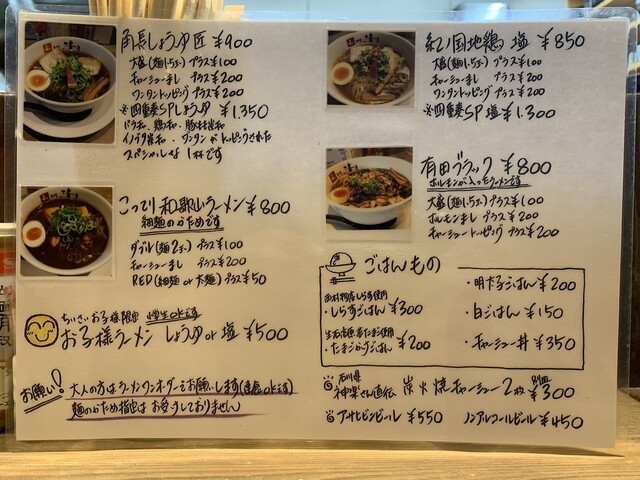 角長しょうゆ匠 ¥900
大盛(麺1.5玉) プラス¥100
チャーシューまし プラス¥200
ワンタントッピング プラス¥200
※四重奏SPしょうゆ ¥1,350
スペシャルな 1杯です
こってり和歌山ラーメン ¥800
細麺のかためです
ダブル(麺2玉) プラス¥100
チャーシューまし プラス¥200
RED(細麺 or 太麺) プラス¥50
ちいさいお子様限定
お子様ラーメン しょうゆ or 塩 ¥500
お願い!
大人の方は1ラーメンワンオーダーをお願いします
麺のかため指定は お受けしておりません
紀ノ国地鶏 塩 ¥850
大盛(麺1.5玉) プラス¥100
チャーシューまし プラス¥200
ワンタントッピング プラス¥200
※四重奏SP 塩 ¥1,300
有田ブラック ¥800
ホルモンが入ったラーメンです
大盛(麺1.5玉) プラス¥100
ホルモンまし プラス¥200
チャーシュートッピング プラス¥200
ごはんもの
しらす使用
・しらすごはん ¥300
使用
・たまごかけごはん ¥200
・明太子ごはん ¥200
・白ごはん ¥150
・チャーシュー丼 ¥350
石川県
神楽さん直伝 炭火焼チャーシュー2枚 別皿 ¥300
アサヒビンビール ¥550 ノンアルコールビール ¥450